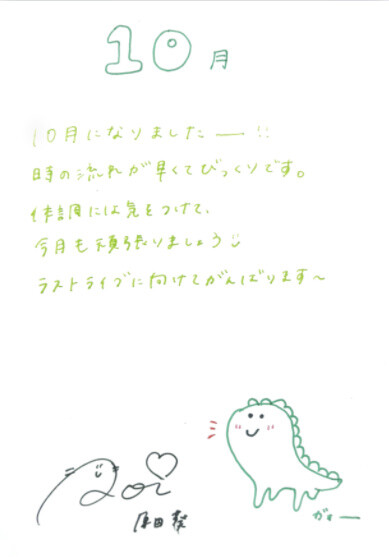 10月
10月になりましたー!!
時の流れが早くてびっくりです。
体調には気をつけて、
今月も頑張りましょう
ラストライブに向けてがんばります〜
Aoi
原田 葵
がおー